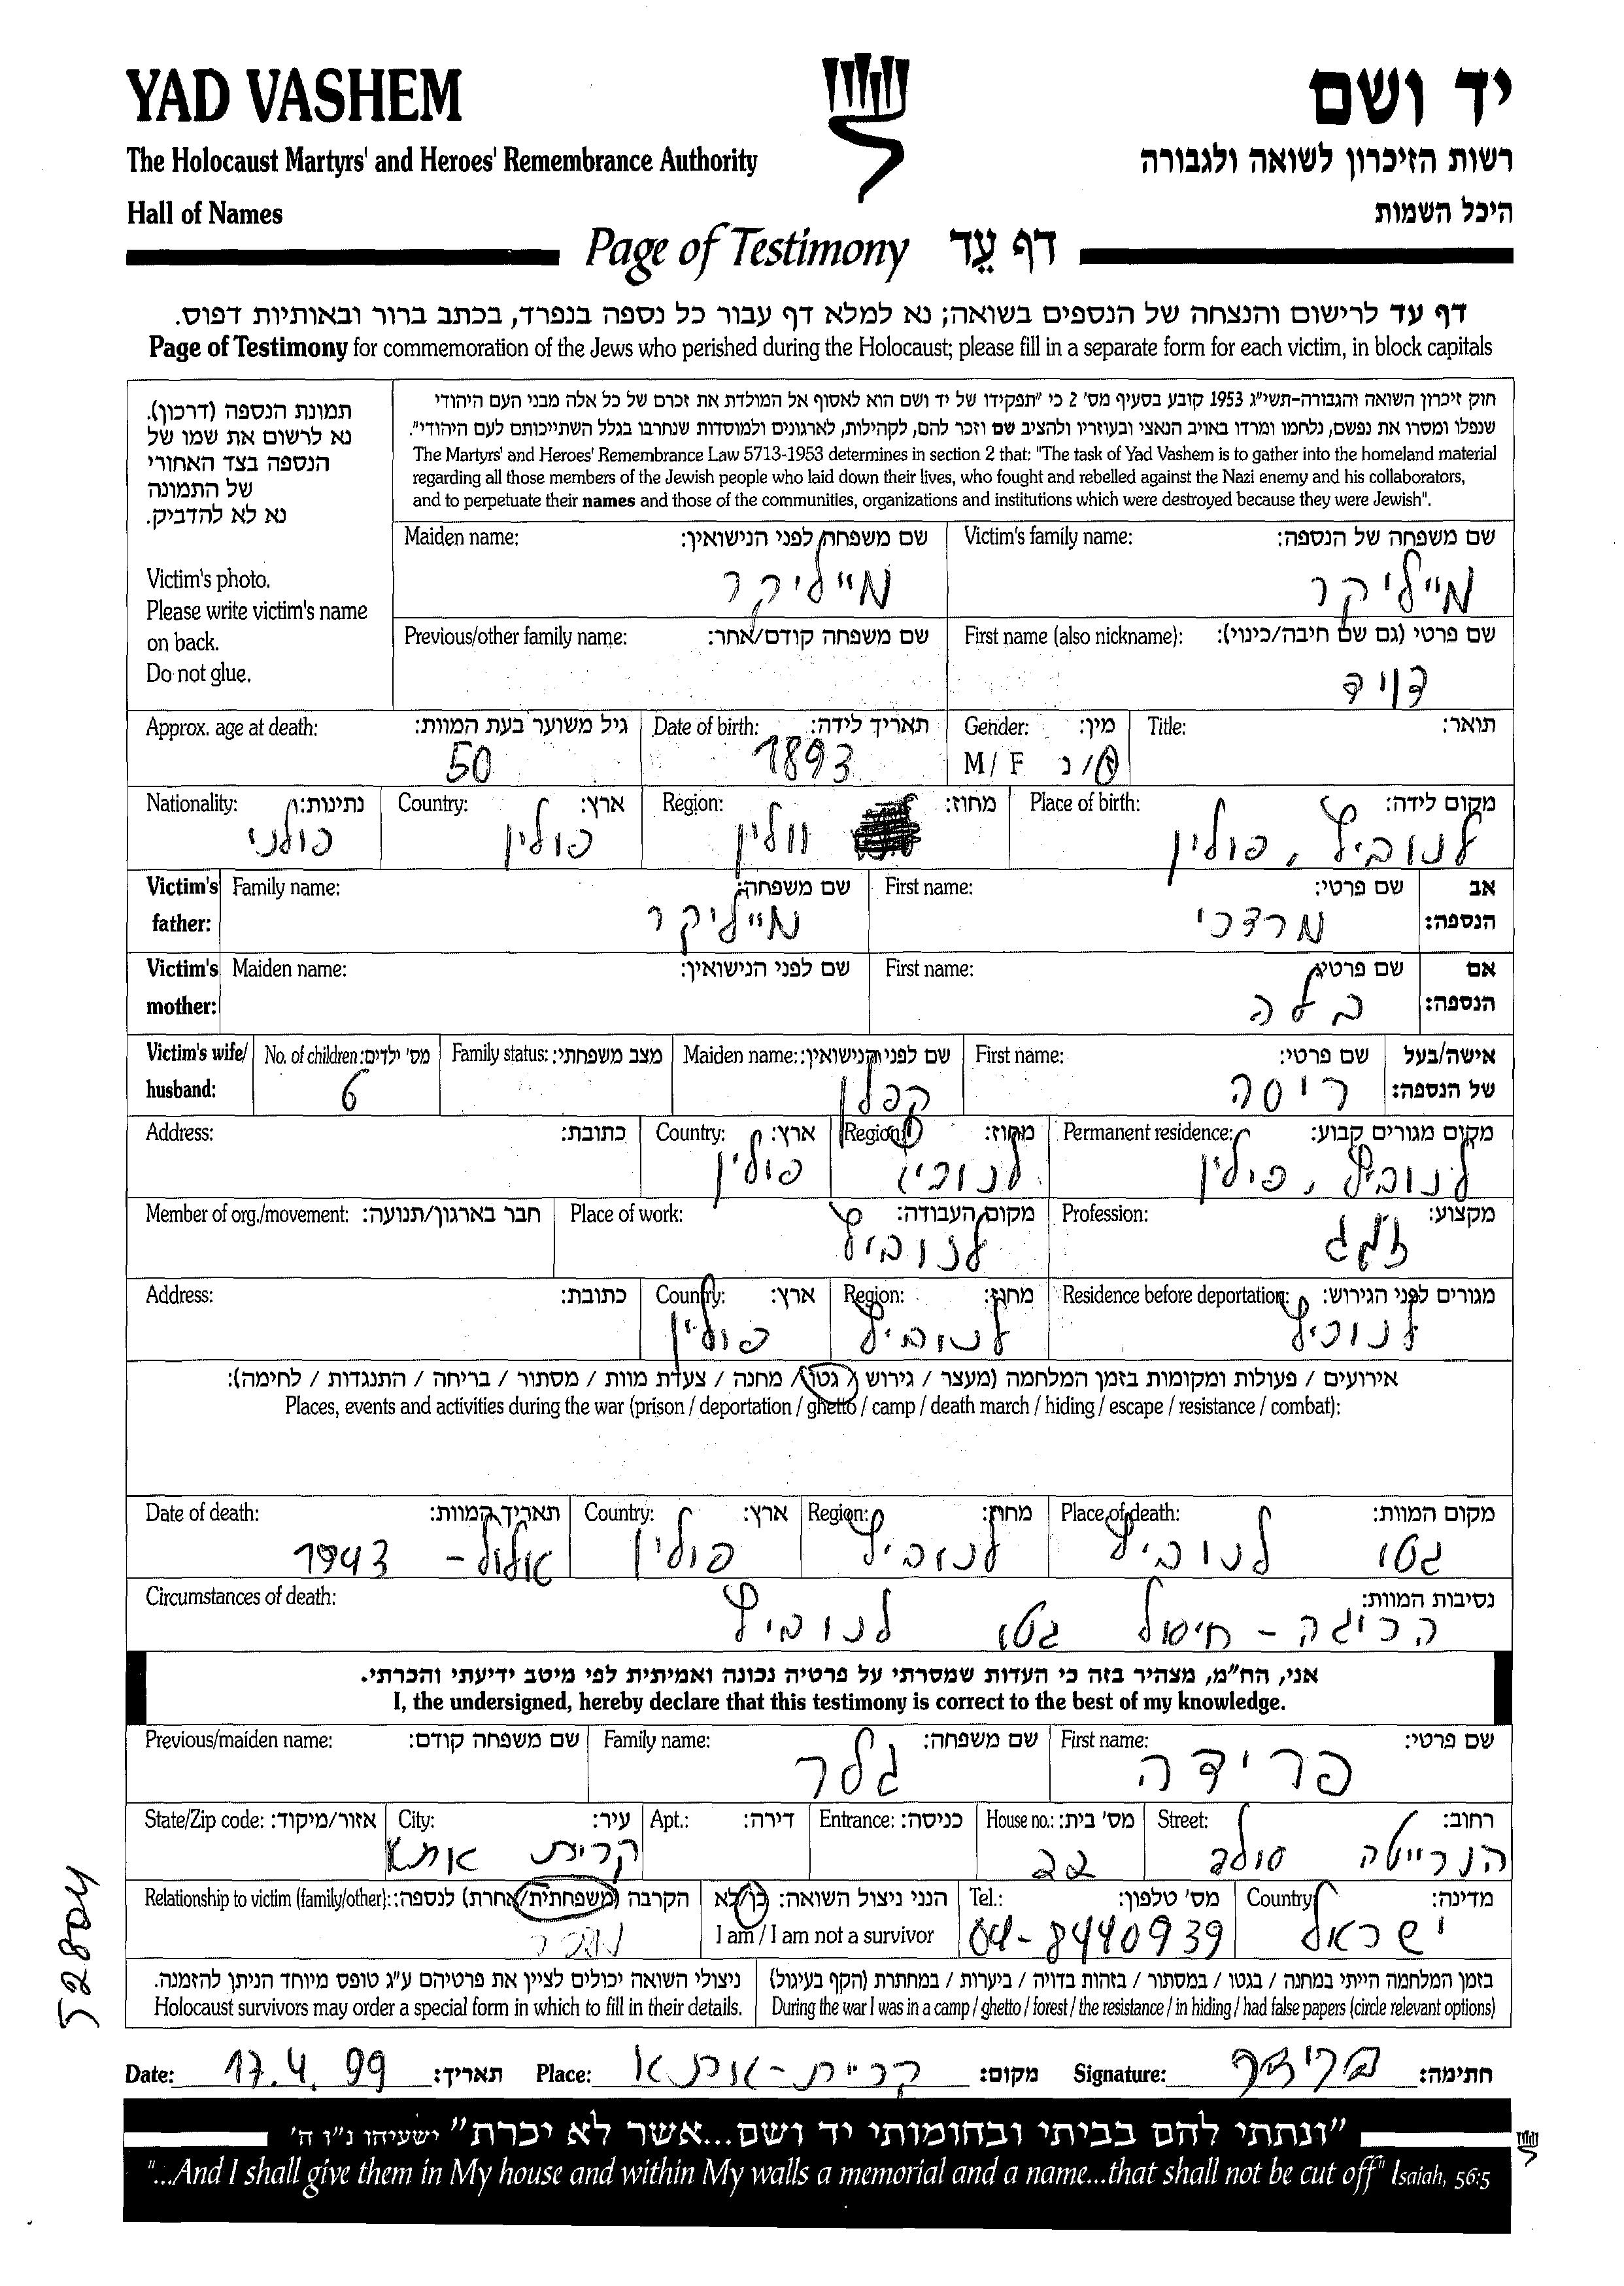 YAD VASHEM
יד ושם
The Holocaust Martyrs' and Heroes' Remembrance Authority
רשות הזיכרון לשואה ולגבורה
Hall of Names
היכל השמות
Page of Testimony דף עֵד
דף עד לרישום והנצחה של הנספים בשואה; נא למלא דף עבור כל נספה בנפרד, בכתב ברור ובאותיות דפוס.
Page of Testimony for commemoration of the Jews who perished during the Holocaust; please fill in a separate form for each victim, in block capitals
תמונת הנספה (דרכון).
נא לרשום את שמו של
הנספה בצד האחורי
של התמונה
נא לא להדביק.
Victim's photo.
Please write victim's name
on back.
Do not glue.
חוק זיכרון השואה והגבורה-תשי"ג 1953 קובע בסעיף מס' 2 כי "תפקידו של יד ושם הוא לאסוף אל המולדת את זכרם של כל אלה מבני העם היהודי
שנפלו ומסרו את נפשם, נלחמו ומרדו באויב הנאצי ובעוזריו ולהציב שם וזכר להם, לקהילות, לארגונים ולמוסדות שנחרבו בגלל השתייכותם לעם היהודי".
The Martyrs' and Heroes' Remembrance Law 5713-1953 determines in section 2 that: "The task of Yad Vashem is to gather into the homeland material
regarding all those members of the Jewish people who laid down their lives, who fought and rebelled against the Nazi enemy and his collaborators,
and to perpetuate their names and those of the communities, organizations and institutions which were destroyed because they were Jewish".
Victim's family name: שם משפחה של הנספה:
מייליקר
Maiden name: שם משפחה לפני הנישואין:
מייליקר
First name (also nickname): שם פרטי (גם שם חיבה/כינוי):
דויד
Previous/other family name: שם משפחה קודם/אחר:
Title: תואר:
Gender: מין:
M / F ז/נ
Date of birth: תאריך לידה:
1893
Approx. age at death: גיל משוער בעת המוות:
50
Place of birth: מקום לידה:
לנוביץ, פולין
Region: מחוז:
ווLין
Country: ארץ:
פולין
Nationality: נתינות:
פולני
Victim's father: אב הנספה:
First name: שם פרטי:
מרדכי
Family name: שם משפחה:
מייליקר
Victim's mother: אם הנספה:
First name: שם פרטי:
בלה
Maiden name: שם לפני הנישואין:
Victim's wife/ husband: אישה/בעל של הנספה:
First name: שם פרטי:
ריסה
Maiden name: שם לפני הנישואין:
קפלן
Family status: מצב משפחתי:
No. of children: מס' ילדים:
6
Permanent residence: מקום מגורים קבוע:
לנוביץ, פולין
Region: מחוז:
לנוביץ
Country: ארץ:
פולין
Address: כתובת:
Profession: מקצוע:
זגג
Place of work: מקום העבודה:
לנוביץ
Member of org./movement: חבר בארגון/תנועה:
Residence before deportation: מגורים לפני הגירוש:
לנוביץ
Region: מחוז:
לנוביץ
Country: ארץ:
פולין
Address: כתובת:
אירועים / פעולות ומקומות בזמן המלחמה (מעצר / גירוש / גטו / מחנה / צעדת מוות / מסתור / בריחה / התנגדות / לחימה):
Places, events and activities during the war (prison / deportation / ghetto / camp / death march / hiding / escape / resistance / combat):
Place of death: מקום המוות:
גטו לנוביץ
Region: מחוז:
לנוביץ
Country: ארץ:
פולין
Date of death: תאריך המוות:
אלול- 1943
Circumstances of death: נסיבות המוות:
הריגה - חיסול גטו לנוביץ
אני, הח"מ, מצהיר בזה כי העדות שמסרתי על פרטיה נכונה ואמיתית לפי מיטב ידיעתי והכרתי.
I, the undersigned, hereby declare that this testimony is correct to the best of my knowledge.
First name: שם פרטי:
פרידה
Family name: שם משפחה:
גלר
Previous/maiden name: שם משפחה קודם:
Street: רחוב:
הנרייטה סולד
House no.: מס' בית:
22
Entrance: כניסה:
Apt.: דירה:
City: עיר:
קרית אתא
State/Zip code: אזור/מיקוד:
Country: מדינה:
ישראל
Tel.: מס' טלפון:
04-8440939
הנני ניצול השואה: כן/לא
I am / I am not a survivor
Relationship to victim (family/other): הקרבה (משפחתית/אחרת) לנספה:
מכר
בזמן המלחמה הייתי במחנה / בגטו / במסתור / בזהות בדויה / ביערות / במחתרת (הקף בעיגול)
During the war I was in a camp / ghetto / forest / the resistance / in hiding / had false papers (circle relevant options)
ניצולי השואה יכולים לציין את פרטיהם ע"ג טופס מיוחד הניתן להזמנה.
Holocaust survivors may order a special form in which to fill in their details.
52804
Date: 17.4.99 תאריך: Place: קריית-אתא מקום: Signature: חתימה:
"ונתתי להם בביתי ובחומותי יד ושם...אשר לא יכרת" ישעיהו נ"ו ה'
"...And I shall give them in My house and within My walls a memorial and a name...that shall not be cut off" Isaiah, 56:5